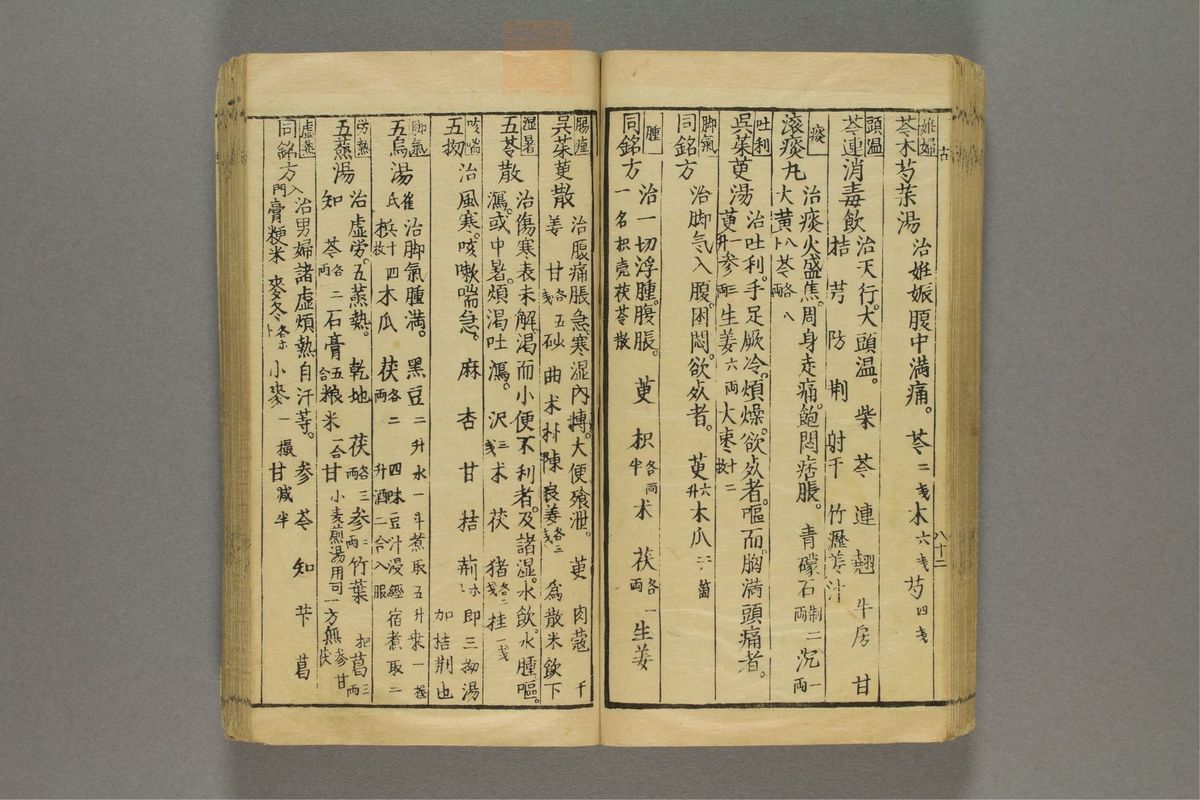 姙婦
苓木芍茱湯 治姙娠腹中満痛。苓二戔木六戔芍四戔
八十二
頭温
苓連消毒飲 治天行。大頭温。柴 苓 連 翹 牛房 甘
桔 芳 防 荆 射干 竹瀝姜汁
痰
滚痰丸 治痰火盛焦。周身走痛。飽悶痞脹。青礞石制二両沉一両
大黄八苓各八両
吐利
呉茱萸湯 治吐利。手足厥冷。煩燥。欲死者。嘔而。胸満頭痛者。
萸一升参三両生姜六両大枣十二枚
脚氣
同銘方 治脚気入腹。困悶。欲死者。萸六升木瓜二ケ箇
腫
同銘方 治一切浮腫。腹脹。萸 枳各半両 术 茯各一両 生姜
一名枳壳茯苓散
腸痺
呉茱萸散 治腹痛脹急。寒湿内摶。大便飱泄。萸 肉蔻 干
姜 甘各五戔 砂 曲 术 朴 陳 良姜各三戔 為散米飲下
湿暑
五苓散 治傷寒表未解。渇而小便不利者。及諸湿。水飲。水腫嘔。
瀉。或中暑。煩渇吐瀉。沢三戔术 茯 猪各二戔桂一戔
咳喘
五拗 治風寒。咳嗽喘急。麻 杏 甘 桔 荊 即三拗湯
加桔荆也
脚氣
五烏湯 崔氏 治脚氣腫満。黑豆二升水一斗煮取五升来一握
梹十四枚木瓜 茯各二両 四味豆汁浸經宿煮取二
升酒二合入服
労熱
五蒸湯 治虚労。五蒸熱。乾地 茯各三両参二両竹葉二把葛三両
知 苓各二両石膏五合粮米一合甘 小麦煎湯用可一方無参甘茯
虚煩
同銘方 入門 治男婦諸虚煩熱自汗等。参 苓 知 芐 葛
膏粳米 麥冬各 小麥一撮甘減半